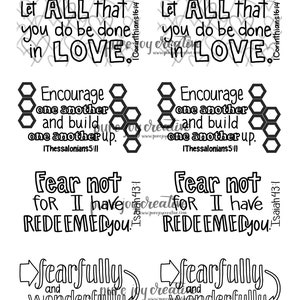 Let ALL that
you do be done
in LOVE.
1Corinthians16:14
Let ALL that
you do be done
in LOVE.
1Corinthians16:14
Encourage
one another
and build
one another up.
1Thessalonians5:11
Encourage
one another
and build
one another up.
1Thessalonians5:11
pure joy creative
Fear not
FOR I have
REDEEMED you.
Isaiah 43:1
Fear not
FOR I have
REDEEMED you.
Isaiah 43:1
pure joy creative
fearfully
and
wonderfully
fearfully
and
wonderfully
pure joy creative